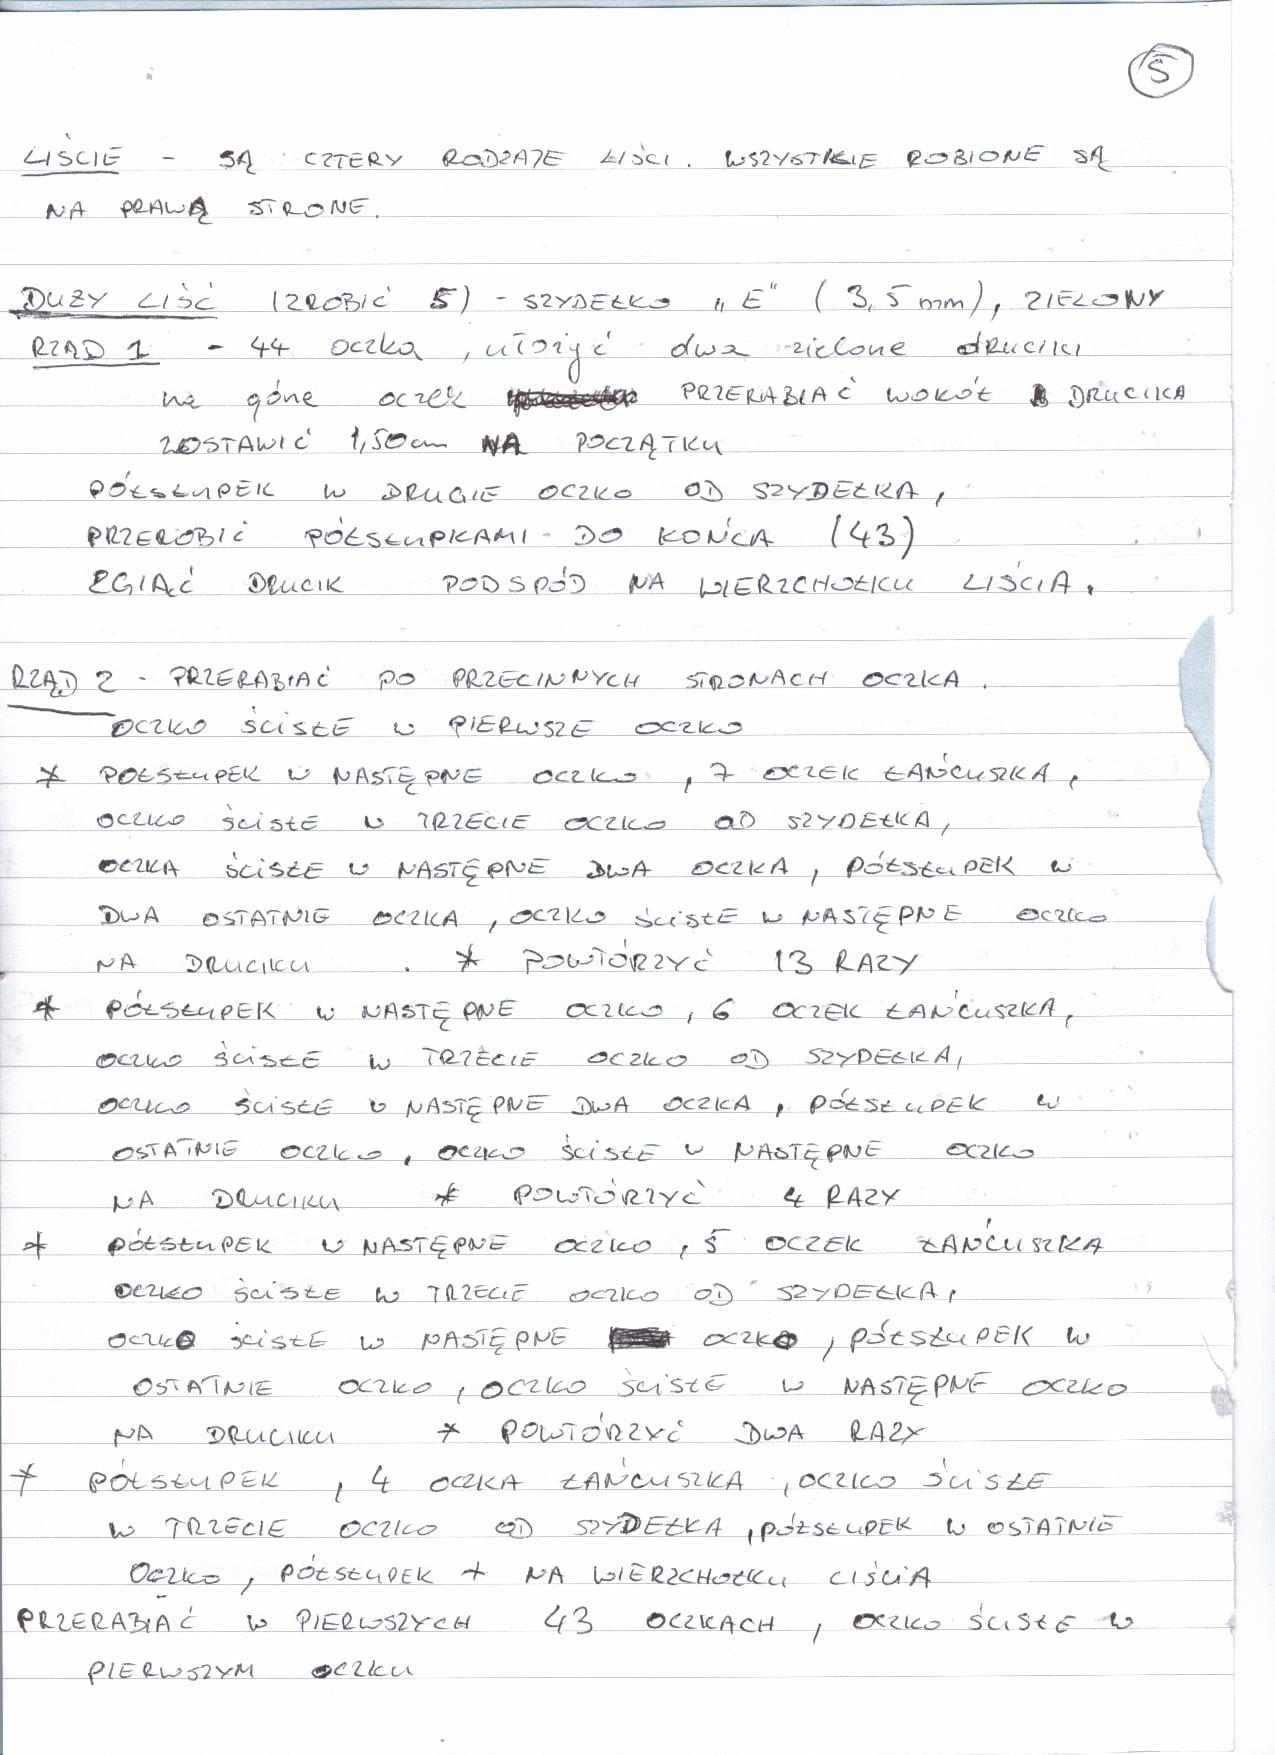 5
LIŚCIE - SĄ CZTERY RODZAJE LIŚCI. WSZYSTKIE ROBIONE SĄ
NA PRAWĄ STRONE.
DUŻY LIŚĆ (ZROBIĆ 5) - SZYDEŁKO „E" (3,5mm), ZIELONY
RZĄD 1 - 44 OCZKA, ułożyć dwa zielone druciki
na górze oczek PRZERABIAĆ WOKÓŁ DRUCIKA
ZOSTAWIĆ 1,50cm NA POCZĄTKU
PÓŁSŁUPEK W DRUGIE OCZKO OD SZYDEŁKA,
PRZEROBIĆ PÓŁSŁUPKAMI DO KOŃCA (43)
ZGIĄĆ DRUCIK POD SPÓD NA WIERZCHOŁKU LIŚCIA.
RZĄD 2 - PRZERABIAĆ PO PRZECINNYCH STRONACH OCZKA.
OCZKO ŚCISŁE W PIERWSZE OCZKO
* POŁSŁUPEK W NASTĘPNE OCZKO, 7 OCZEK ŁAŃCUSZKA,
OCZKO ŚCISŁE W TRZECIE OCZKO OD SZYDEŁKA,
OCZKA ŚCISŁE W NASTĘPNE DWA OCZKA, PÓŁSŁUPEK W
DWA OSTATNIE OCZKA, OCZKO ŚCISŁE W NASTĘPNE OCZKO
NA DRUCIKU. * POWTÓRZYĆ 13 RAZY
* PÓŁSŁUPEK W NASTĘPNE OCZKO, 6 OCZEK ŁAŃCUSZKA,
OCZKO ŚCISŁE W TRZECIE OCZKO OD SZYDEŁKA,
OCZKO ŚCISŁE W NASTĘPNE DWA OCZKA, PÓŁSŁUPEK W
OSTATNIE OCZKO, OCZKO ŚCISŁE W NASTĘPNE OCZKO
NA DRUCIKU * POWTÓRZYĆ 4 RAZY
* PÓŁSŁUPEK W NASTĘPNE OCZKO, 5 OCZEK ŁAŃCUSZKA
OCZKO ŚCISŁE W TRZECIE OCZKO OD SZYDEŁKA,
OCZKO ŚCISŁE W NASTĘPNE OCZKO, PÓŁSŁUPEK W
OSTATNIE OCZKO, OCZKO ŚCISŁE W NASTĘPNE OCZKO
NA DRUCIKU * POWTÓRZYĆ DWA RAZY
* PÓŁSŁUPEK, 4 OCZKA ŁAŃCUSZKA, OCZKO ŚCISŁE
W TRZECIE OCZKO OD SZYDEŁKA, PÓŁSŁUPEK W OSTATNIE
OCZKO, PÓŁSŁUPEK * NA WIERZCHOŁKU LIŚCIA
PRZERABIAĆ W PIERWSZYCH 43 OCZKACH, OCZKO ŚCISŁE W
PIERWSZYM OCZKU